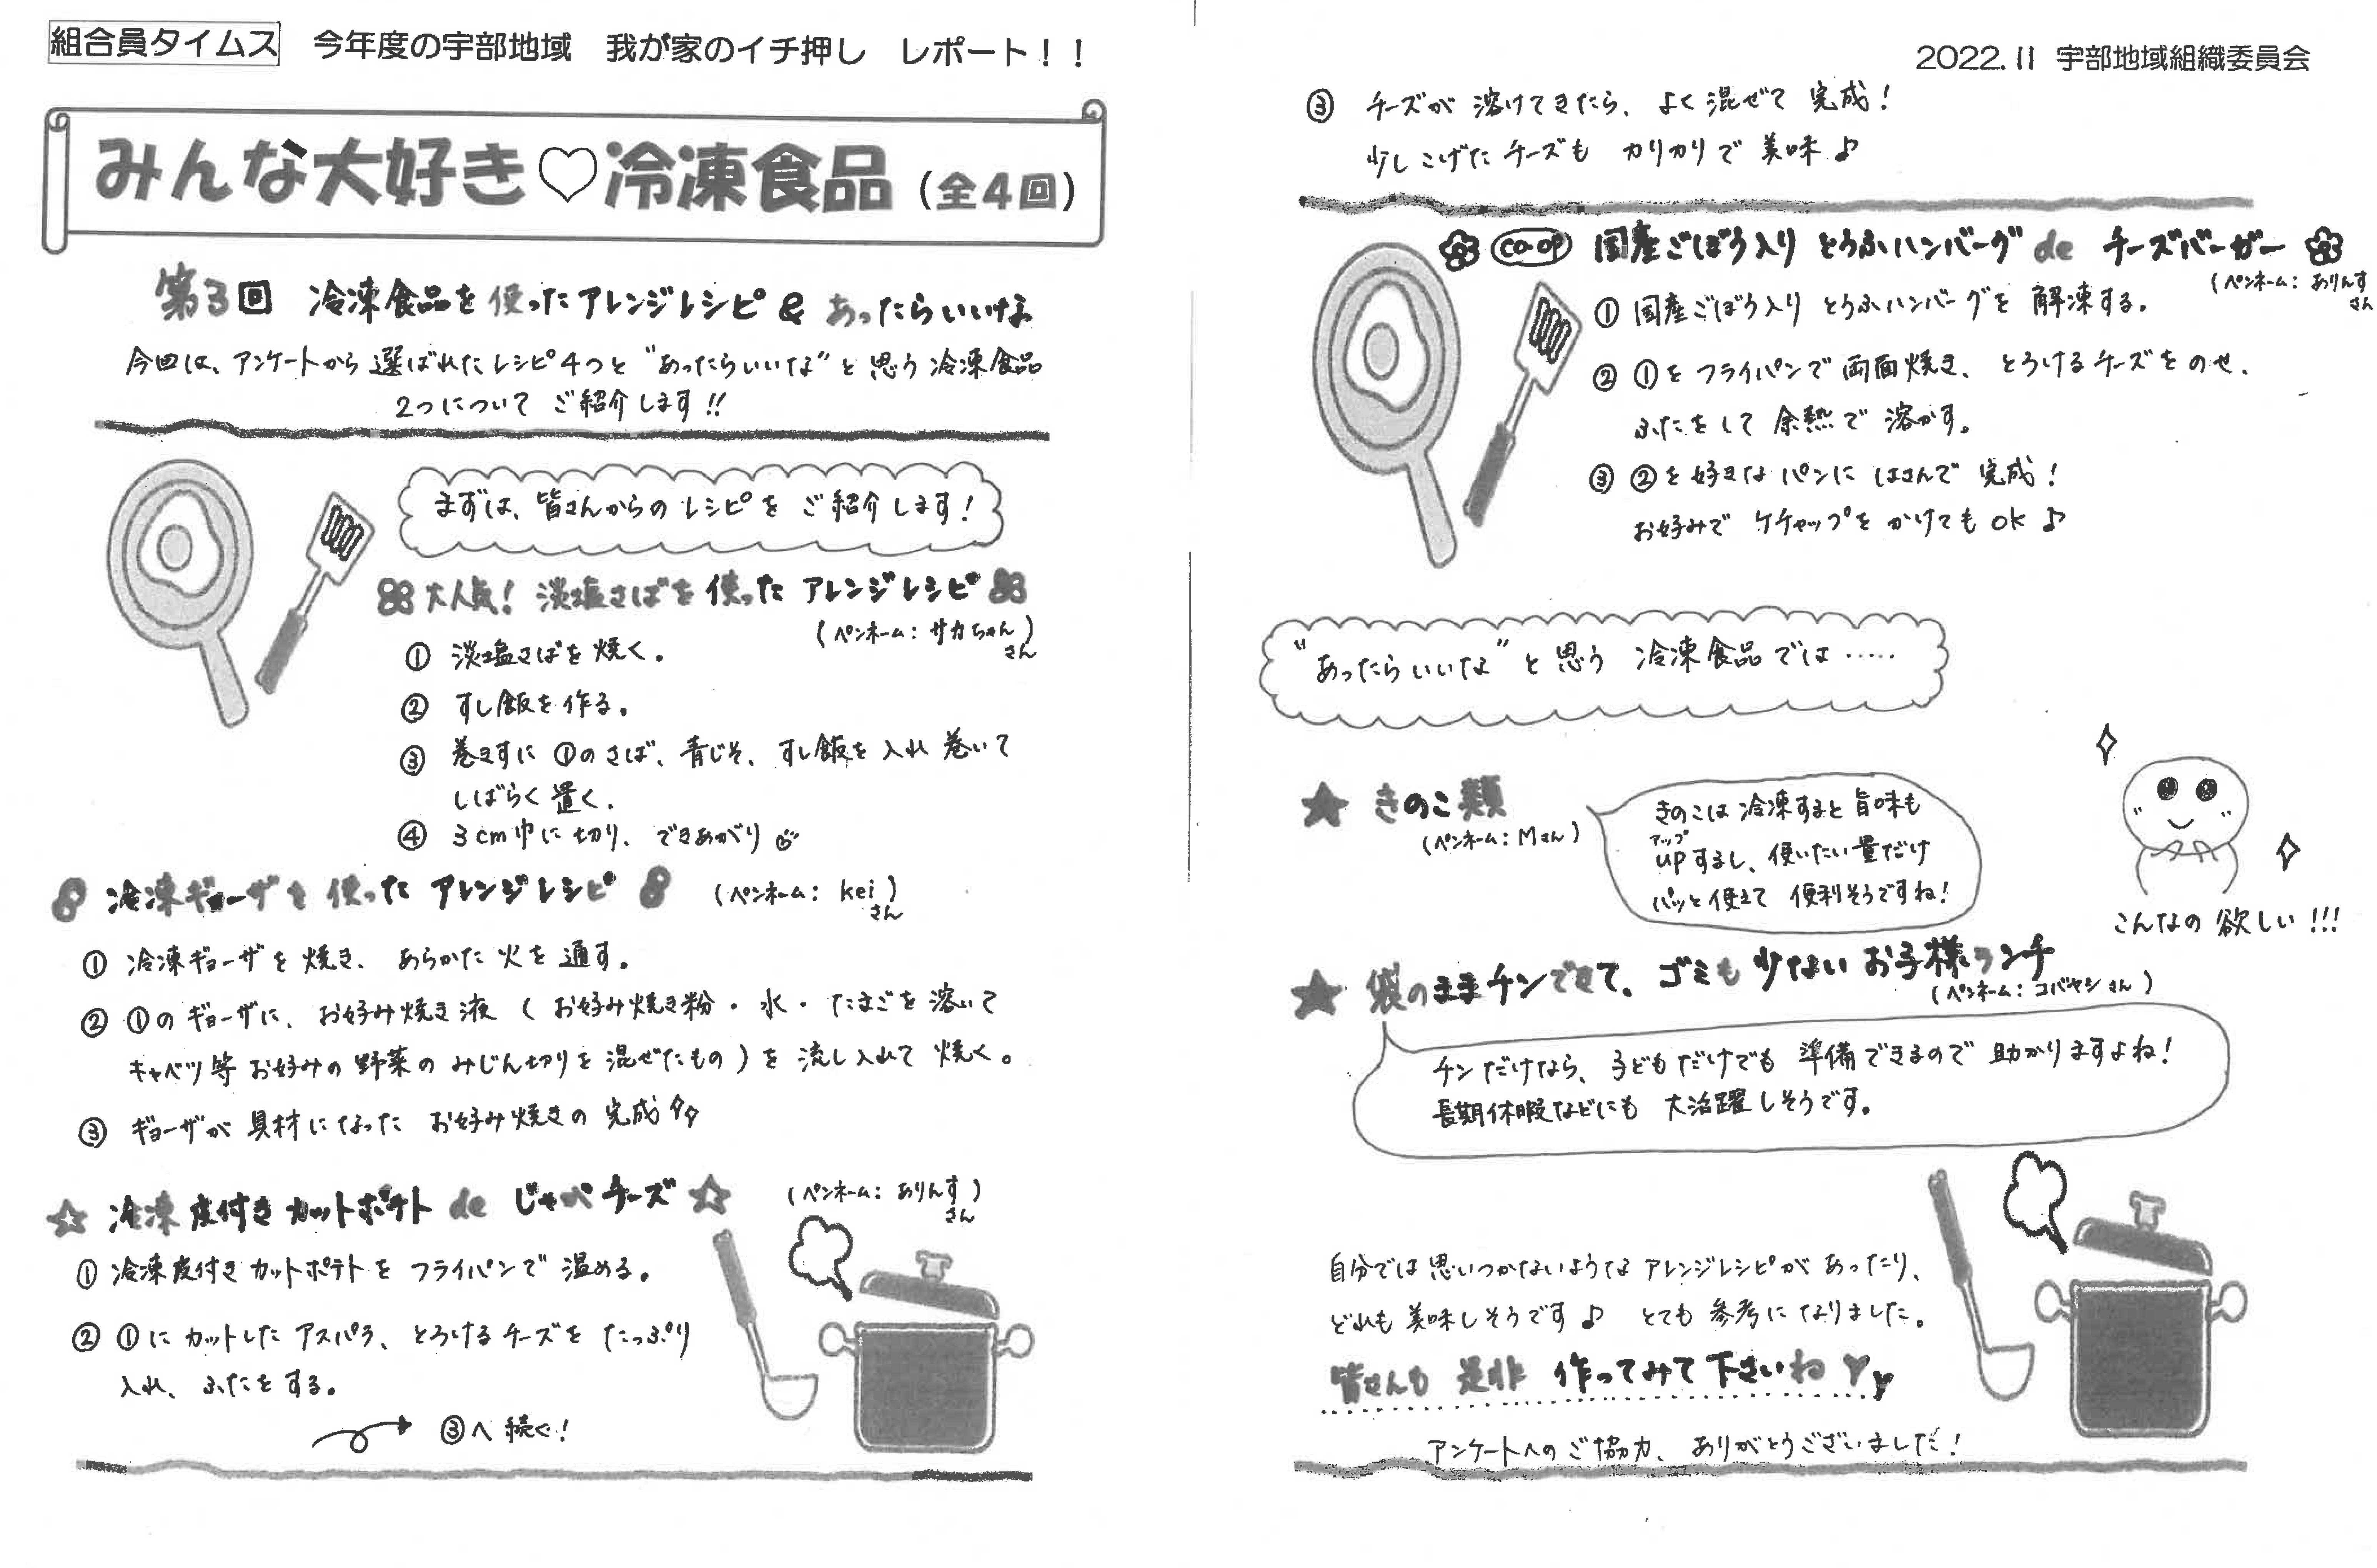 組合員タイムス 今年度の宇部地域 我が家のイチ押し レポート！！
みんな大好き♡冷凍食品（全4回）
第3回 冷凍食品を使ったアレンジレシピ & あったらいいな
今回は、アンケートから選ばれたレシピ4つと"あったらいいな"と思う冷凍食品
2つについてご紹介します!!
まずは、皆さんからのレシピをご紹介します！
大人気！淡塩さばを使ったアレンジレシピ
（ペンネーム：サカちゃんさん）
① 淡塩さばを焼く。
② すし飯を作る。
③ 巻きすに①のさば、青じそ、すし飯を入れ巻いて
しばらく置く。
④ 3cm巾に切り、できあがり
冷凍ギョーザを使ったアレンジレシピ （ペンネーム：keiさん）
① 冷凍ギョーザを焼き、あらかた火を通す。
② ①のギョーザに、お好み焼き液（お好み焼き粉・水・たまごを溶いて
キャベツ等お好みの野菜のみじん切りを混ぜたもの）を流し入れて焼く。
③ ギョーザが具材になったお好み焼きの完成
☆ 冷凍皮付きカットポテト de じゃがチーズ ☆ （ペンネーム：ありんすさん）
① 冷凍皮付きカットポテトをフライパンで温める。
② ①にカットしたアスパラ、とろけるチーズをたっぷり
入れ、ふたをする。
③へ続く！
2022.11 宇部地域組織委員会
③ チーズが溶けてきたら、よく混ぜて完成！
少しこげたチーズもカリカリで美味♪
co-op 国産ごぼう入りとうふハンバーグ de チーズバーガー
（ペンネーム：ありんすさん
① 国産ごぼう入りとうふハンバーグを解凍する。
② ①をフライパンで両面焼き、とろけるチーズをのせ、
ふたをして余熱で溶かす。
③ ②を好きなパンにはさんで完成！
お好みでケチャップをかけてもOK♪
"あったらいいな"と思う冷凍食品では……
★ きのこ類
（ペンネーム：Mさん）
きのこは冷凍すると旨味も
アップ
upするし、使いたい量だけ
パッと使えて便利そうですね！
こんなの欲しい!!!
★ 袋のままチンできて、ゴミも少ないお子様ランチ
（ペンネーム：コバヤシさん）
チンだけなら、子どもだけでも準備できるので助かりますよね！
長期休暇などにも大活躍しそうです。
自分では思いつかないようなアレンジレシピがあったり、
どれも美味しそうです♪ とても参考になりました。
皆さんも是非作ってみて下さいね
アンケートへのご協力、ありがとうございました！